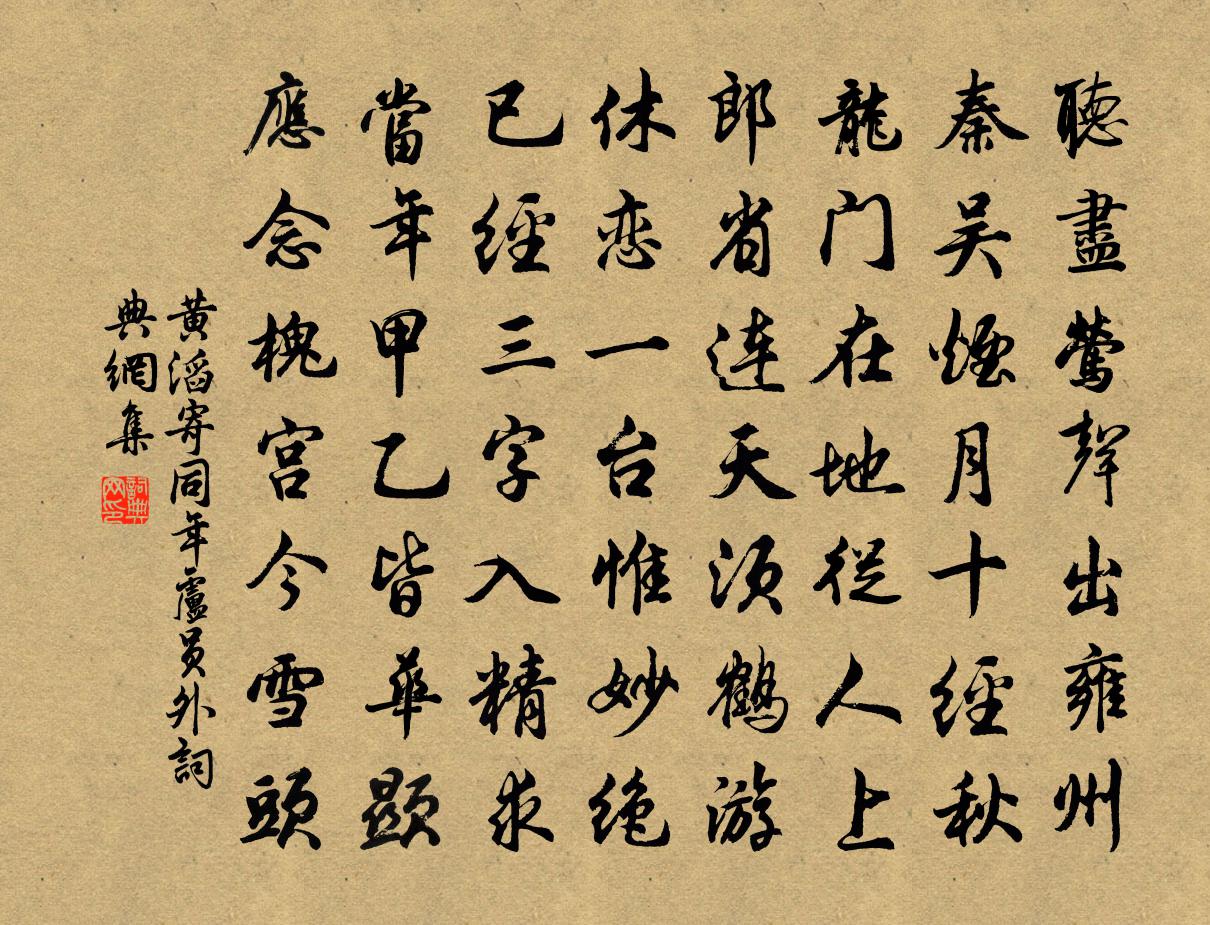 聽盡鶯聲出雍州
秦吴煙月十經秋
龍门在地從人上
郎省連天須鶴游
休恋一台惟妙绝
已經三字入精求
當年甲乙皆華顯
應念槐宫今雪頭
黄滔寄同年盧員外詞
典網集
詞典网印